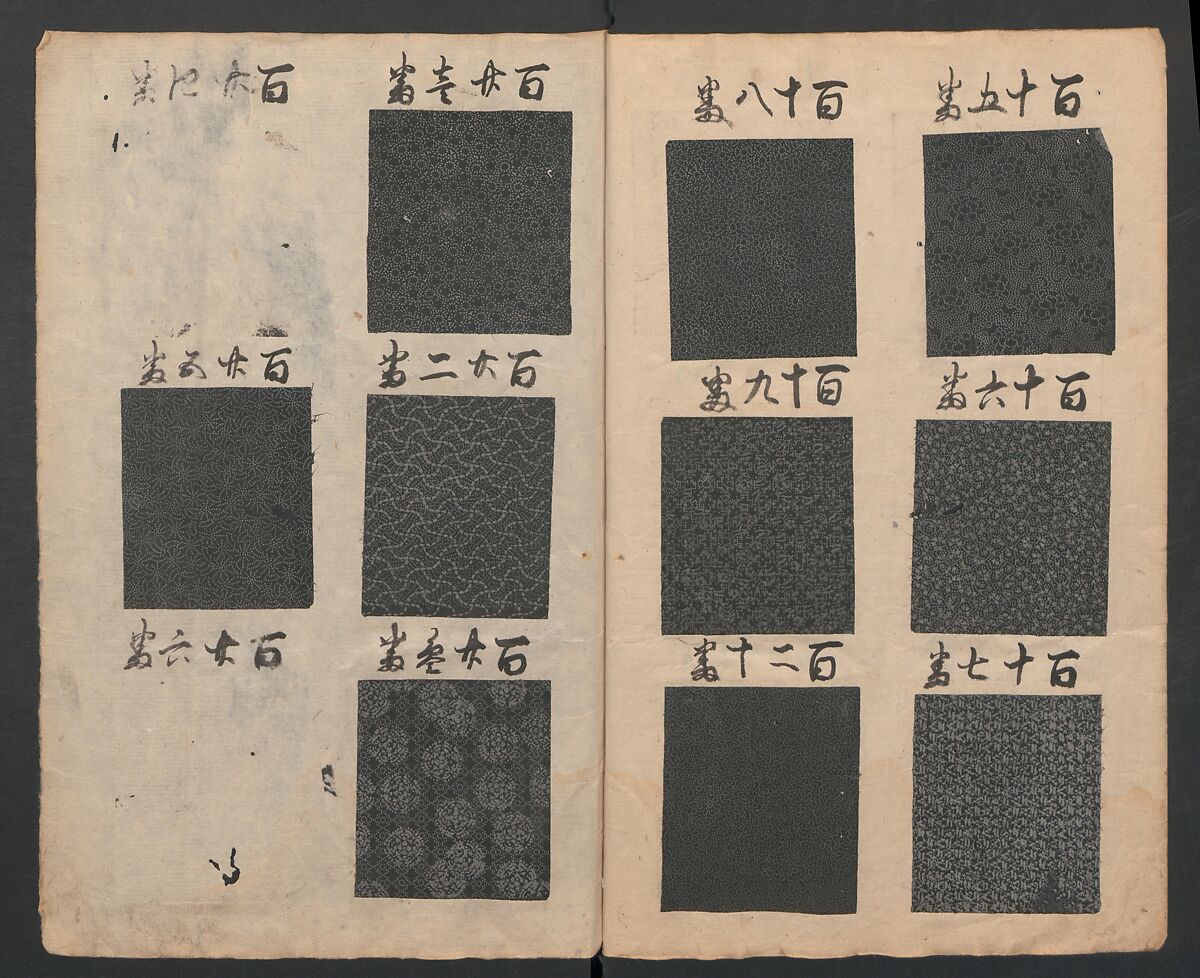 百十五番
百十六番
百十七番
百十八番
百十九番
百二十番
百廿壱番
百廿二番
百廿参番
百廿四番
百廿五番
百廿六番